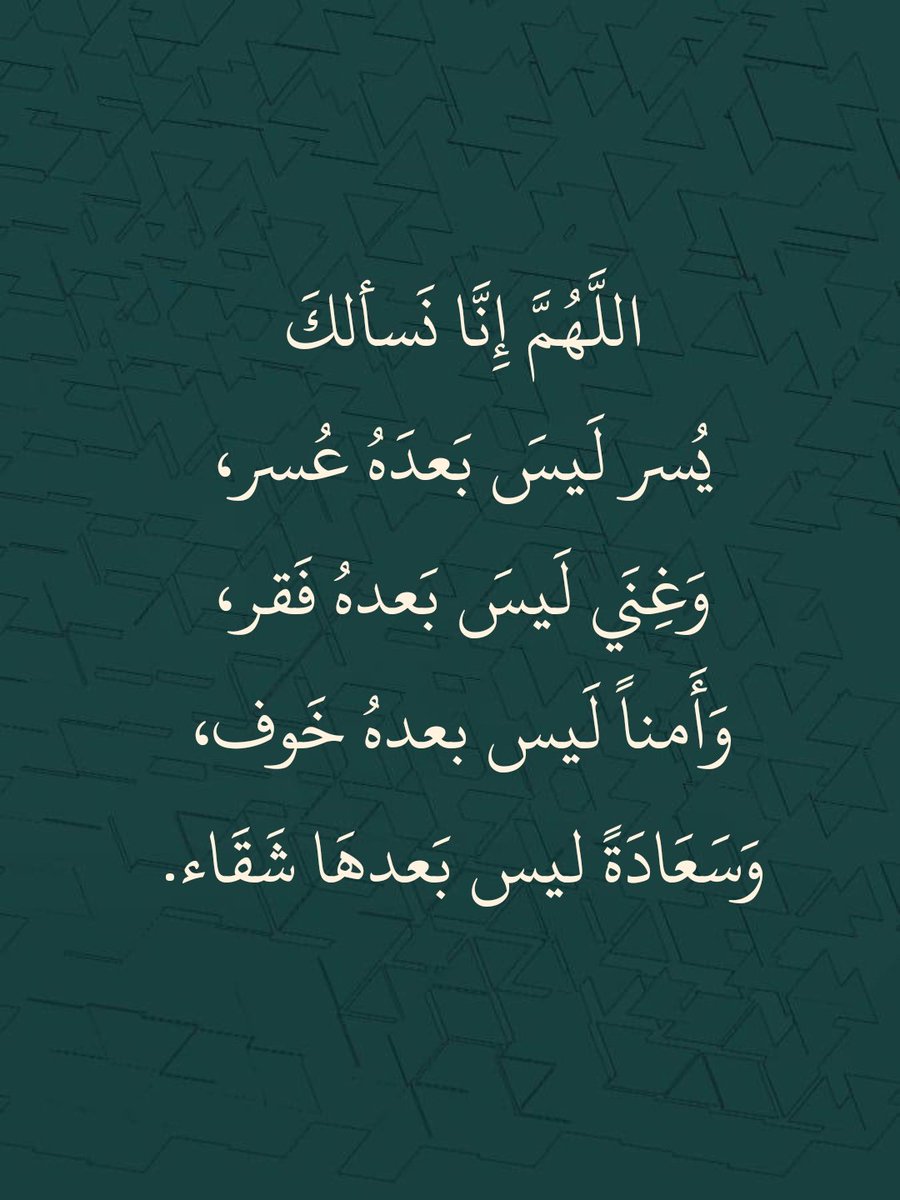 اللَّهُمَّ إِنَّا نَسألكَ
يُسر لَيسَ بَعدَهُ عُسر،
وَغِنَي لَيسَ بَعدهُ فَقر،
وَأَمناً لَيس بعدهُ خَوف،
وَسَعَادَةً ليس بَعدهَا شَقَاء.